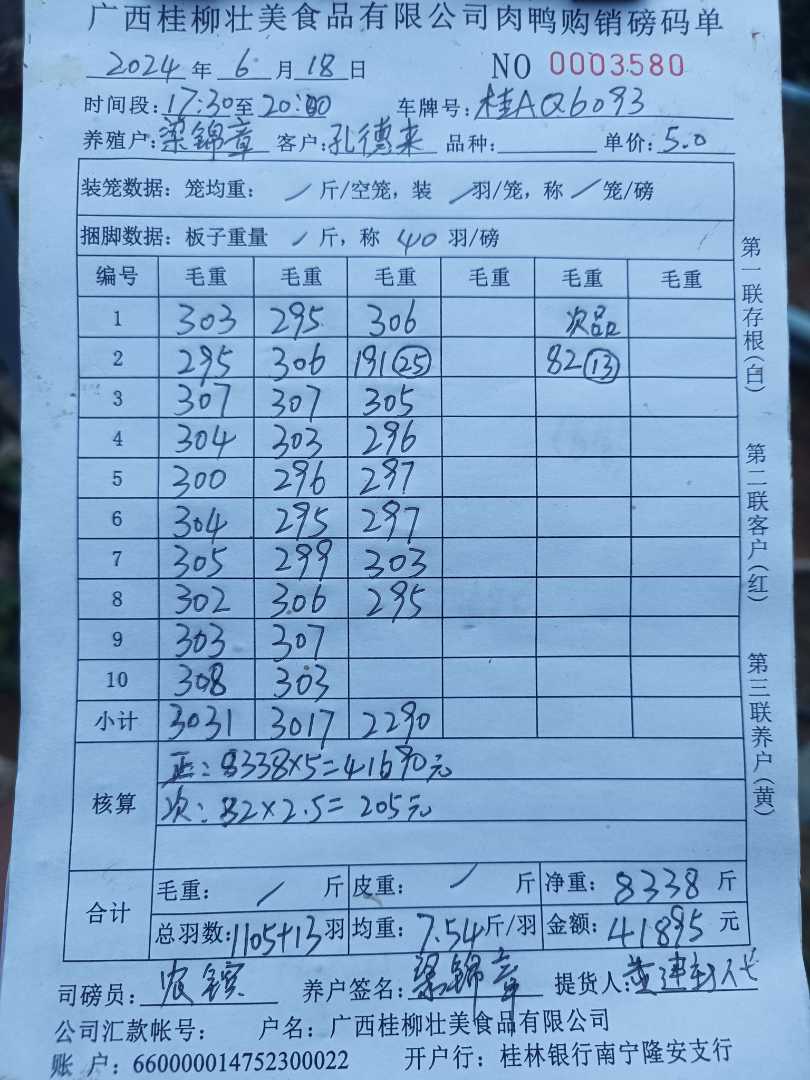 广西桂柳壮美食品有限公司肉鸭购销磅码单
2024年 6 月 18 日 NO 0003580
时间段:17:30至20:00 车牌号:桂AQ6093
养殖户:梁锦章 客户:孔德来 品种: 单价:5.0
装笼数据: 笼均重: / 斤/空笼, 装 / 羽/笼, 称 / 笼/磅
捆脚数据: 板子重量 / 斤, 称 40 羽/磅
编号 毛重 毛重 毛重 毛重 毛重 毛重
1 303 295 306 次品
2 295 306 191(25) 82(13)
3 307 307 305
4 304 303 296
5 300 296 297
6 304 295 297
7 305 299 303
8 302 306 295
9 303 307
10 308 303
小计 3031 3017 2290
核算
正: 8338×5=41690元
次: 82×2.5= 205元
合计
毛重: / 斤 皮重: / 斤 净重: 8338 斤
总羽数:1105+13羽 均重: 7.54斤/羽 金额: 41895 元
司磅员: 农 养户签名: 梁锦章 提货人: 黄建
公司汇款帐号: 户名: 广西桂柳壮美食品有限公司
账 户: 660000014752300022 开户行: 桂林银行南宁隆安支行
第一联存根(白)
第二联客户(红)
第三联养户(黄)